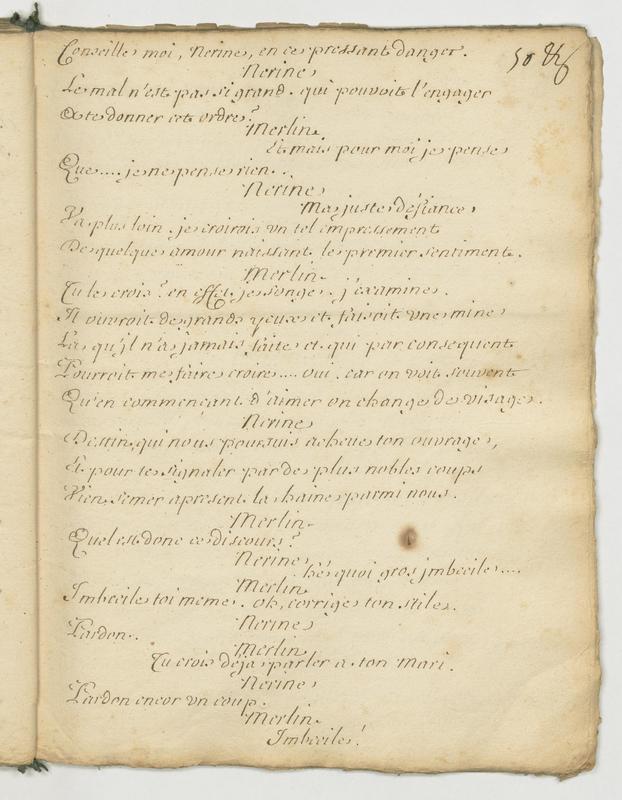 50
Conseille moi, Nerine, en ce pressant danger.
Nerine
Le mal n'est pas si grand. qui pouvoit l'engager
A te donner cet ordre?
Merlin
Et mais pour moi je pense
Que.... je ne pense rien...
Nerine
Ma juste défiance
Va plus loin. je croirois un tel empressement
De quelque amour naissant le premier sentiment.
Merlin
Tu le crois? en effet je songe. j'examine.
Il ouvroit de grands yeux et faisoit une mine
La qu'jl n'a jamais faite et qui par consequent
Pourroit me faire croire.... oui. car on voit souvent
Qu'en commençant d'aimer on change de visage.
Nerine
Destin, qui nous poursuis acheve ton ouvrage,
Et pour te signaler par de plus nobles coups
Vien semer apresent la haine parmi nous.
Merlin
Quel est donc ce discours?
Nerine
hé quoi gros jmbecile....
Merlin
Imbecile toi meme. oh, corrige ton stile.
Nerine
Pardon..
Merlin
Tu crois déja parler a ton mari.
Nerine
Pardon encor un coup.
Merlin
Imbecile!